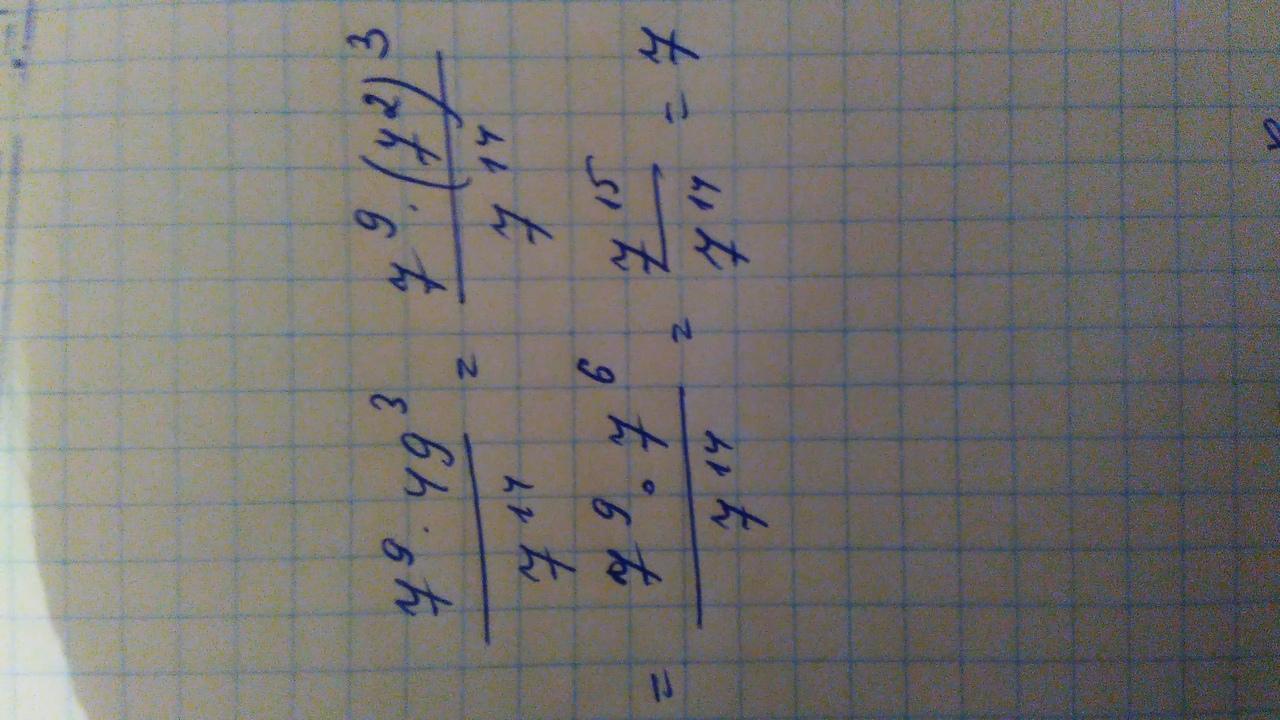 7⁹ · 49³ / 7¹⁴ = 7⁹ · (7²)³ / 7¹⁴
= 7⁹ · 7⁶ / 7¹⁴ = 7¹⁵ / 7¹⁴ = 7